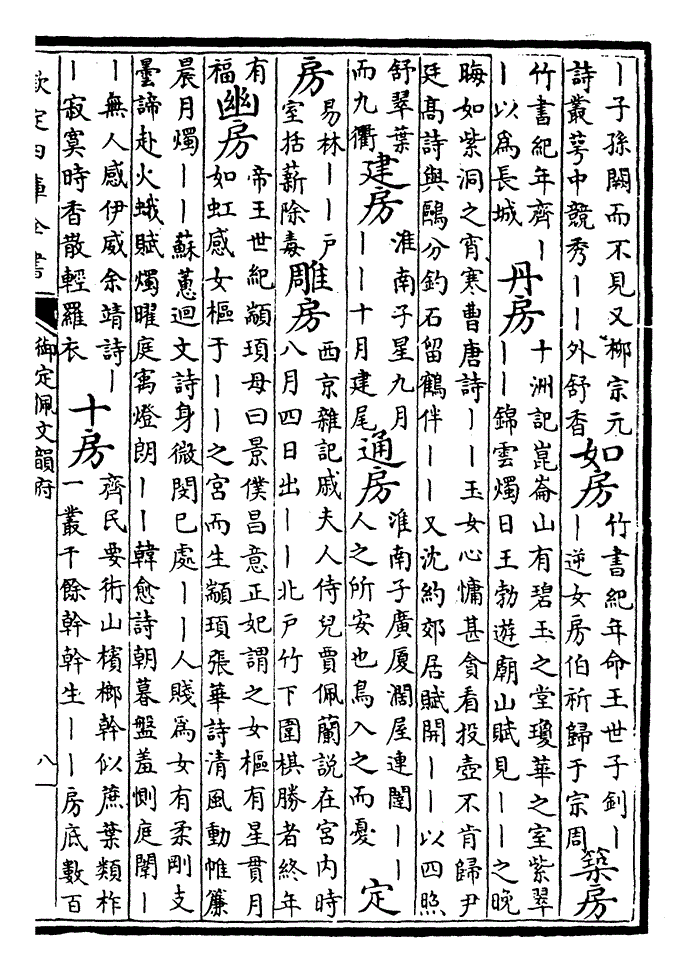 ｜子孫闕而不見又柳宗元
詩叢蕚中競秀｜｜外舒香
如房
竹書紀年命王世子釗｜
｜逆女房伯祈歸于宗周
築房
竹書紀年齊｜
｜以為長城
丹房
十洲記崑崙山有碧玉之堂瓊華之室紫翠
｜｜錦雲燭日王勃遊廟山賦見｜｜之晚
晦如紫洞之宵寒曹唐詩｜｜玉女心慵甚貪看投壺不肯歸尹
廷高詩與鷗分釣石留鶴伴｜｜又沈約郊居賦開｜｜以四照
舒翠葉
而九衢
建房
淮南子星九月
｜｜十月建尾
通房
淮南子廣厦濶屋連闥｜｜
人之所安也鳥入之而憂
定
房
易林｜｜戶
室括薪除毒
雕房
西京雜記戚夫人侍兒賈佩蘭說在宮内時
八月四日出｜｜北戶竹下圍棋勝者終年
有
福
幽房
帝王世紀顓頊母曰景僕昌意正妃謂之女樞有星貫月
如虹感女樞于｜｜之宮而生顓頊張華詩清風動帷簾
晨月燭｜｜蘇蕙迴文詩身微閔已處｜｜人賤為女有柔剛支
曇諦赴火蛾賦燭曜庭寓燈朗｜｜韓愈詩朝暮盤羞惻庭闈｜
｜無人感伊威余靖詩｜
｜寂寞時香散輕羅衣
十房
齊民要術山檳榔幹似蔗葉類柞
一叢千餘幹幹生｜｜房底數百
欽定四庫全書
御定佩文韻府
八